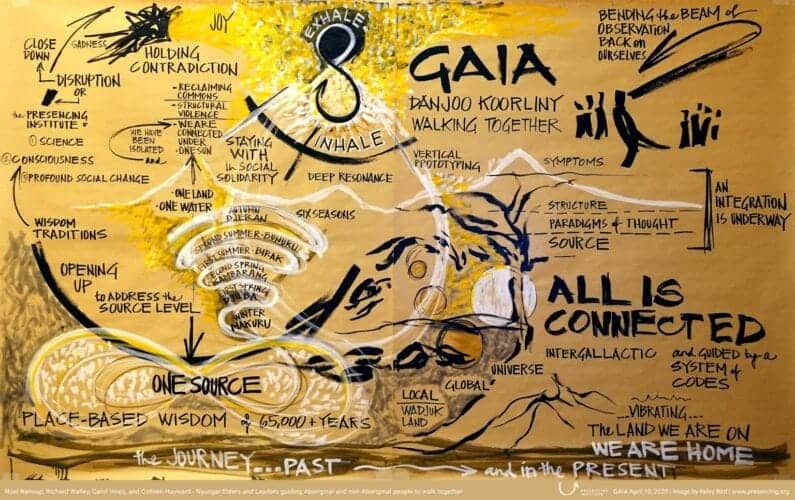 CLOSE
DOWN
SADNESS
JOY
HOLDING
CONTRADICTION
DISRUPTION
OR
the PRESENCING
INSTITUTE =
① SCIENCE
② CONSCIOUSNESS
③ PROFOUND SOCIAL CHANGE
WISDOM
TRADITIONS
OPENING
UP
to ADDRESS the
SOURCE LEVEL
- RECLAIMING
COMMONS
- STRUCTURAL
VIOLENCE
- WE ARE
CONNECTED
UNDER
ONE SUN
WE HAVE
BEEN
ISOLATED
and
· ONE LAND
· ONE WATER
STAYING
WITH
in SOCIAL
SOLIDARITY
EXHALE
INHALE
DEEP RESONANCE
SIX SEASONS
AUTUMN
DJERAN
SECOND SUMMER - BUNURU
FIRST SUMMER - BIRAK
SECOND SPRING
KAMBARANG
FIRST SPRING
DJILBA
WINTER
MAKURU
ONE SOURCE
PLACE-BASED WISDOM of 65,000+ YEARS
GAIA
DANJOO KOORLINY
WALKING TOGETHER
VERTICAL
PROTOTYPING
BENDING the BEAM of
OBSERVATION
BACK on
OURSELVES
SYMPTOMS
STRUCTURE
PARADIGMS of THOUGHT
SOURCE
AN
INTEGRATION
IS UNDERWAY
ALL IS
CONNECTED
INTERGALLACTIC
and GUIDED by a
SYSTEM of
CODES
UNIVERSE
GLOBAL
LOCAL
WADJUK
LAND
...VIBRATING...
The LAND WE ARE ON
WE ARE HOME
the JOURNEY...PAST
and in the PRESENT
PRESENCING
INSTITUTE
Noel Nannup, Richard Walley, Carol Innes, and Colleen Hayward - Nyungar Elders and Leaders guiding Aboriginal and non-Aboriginal people to walk together
GAIA April 10, 2020 | Image by Kelvy Bird | www.presencing.org